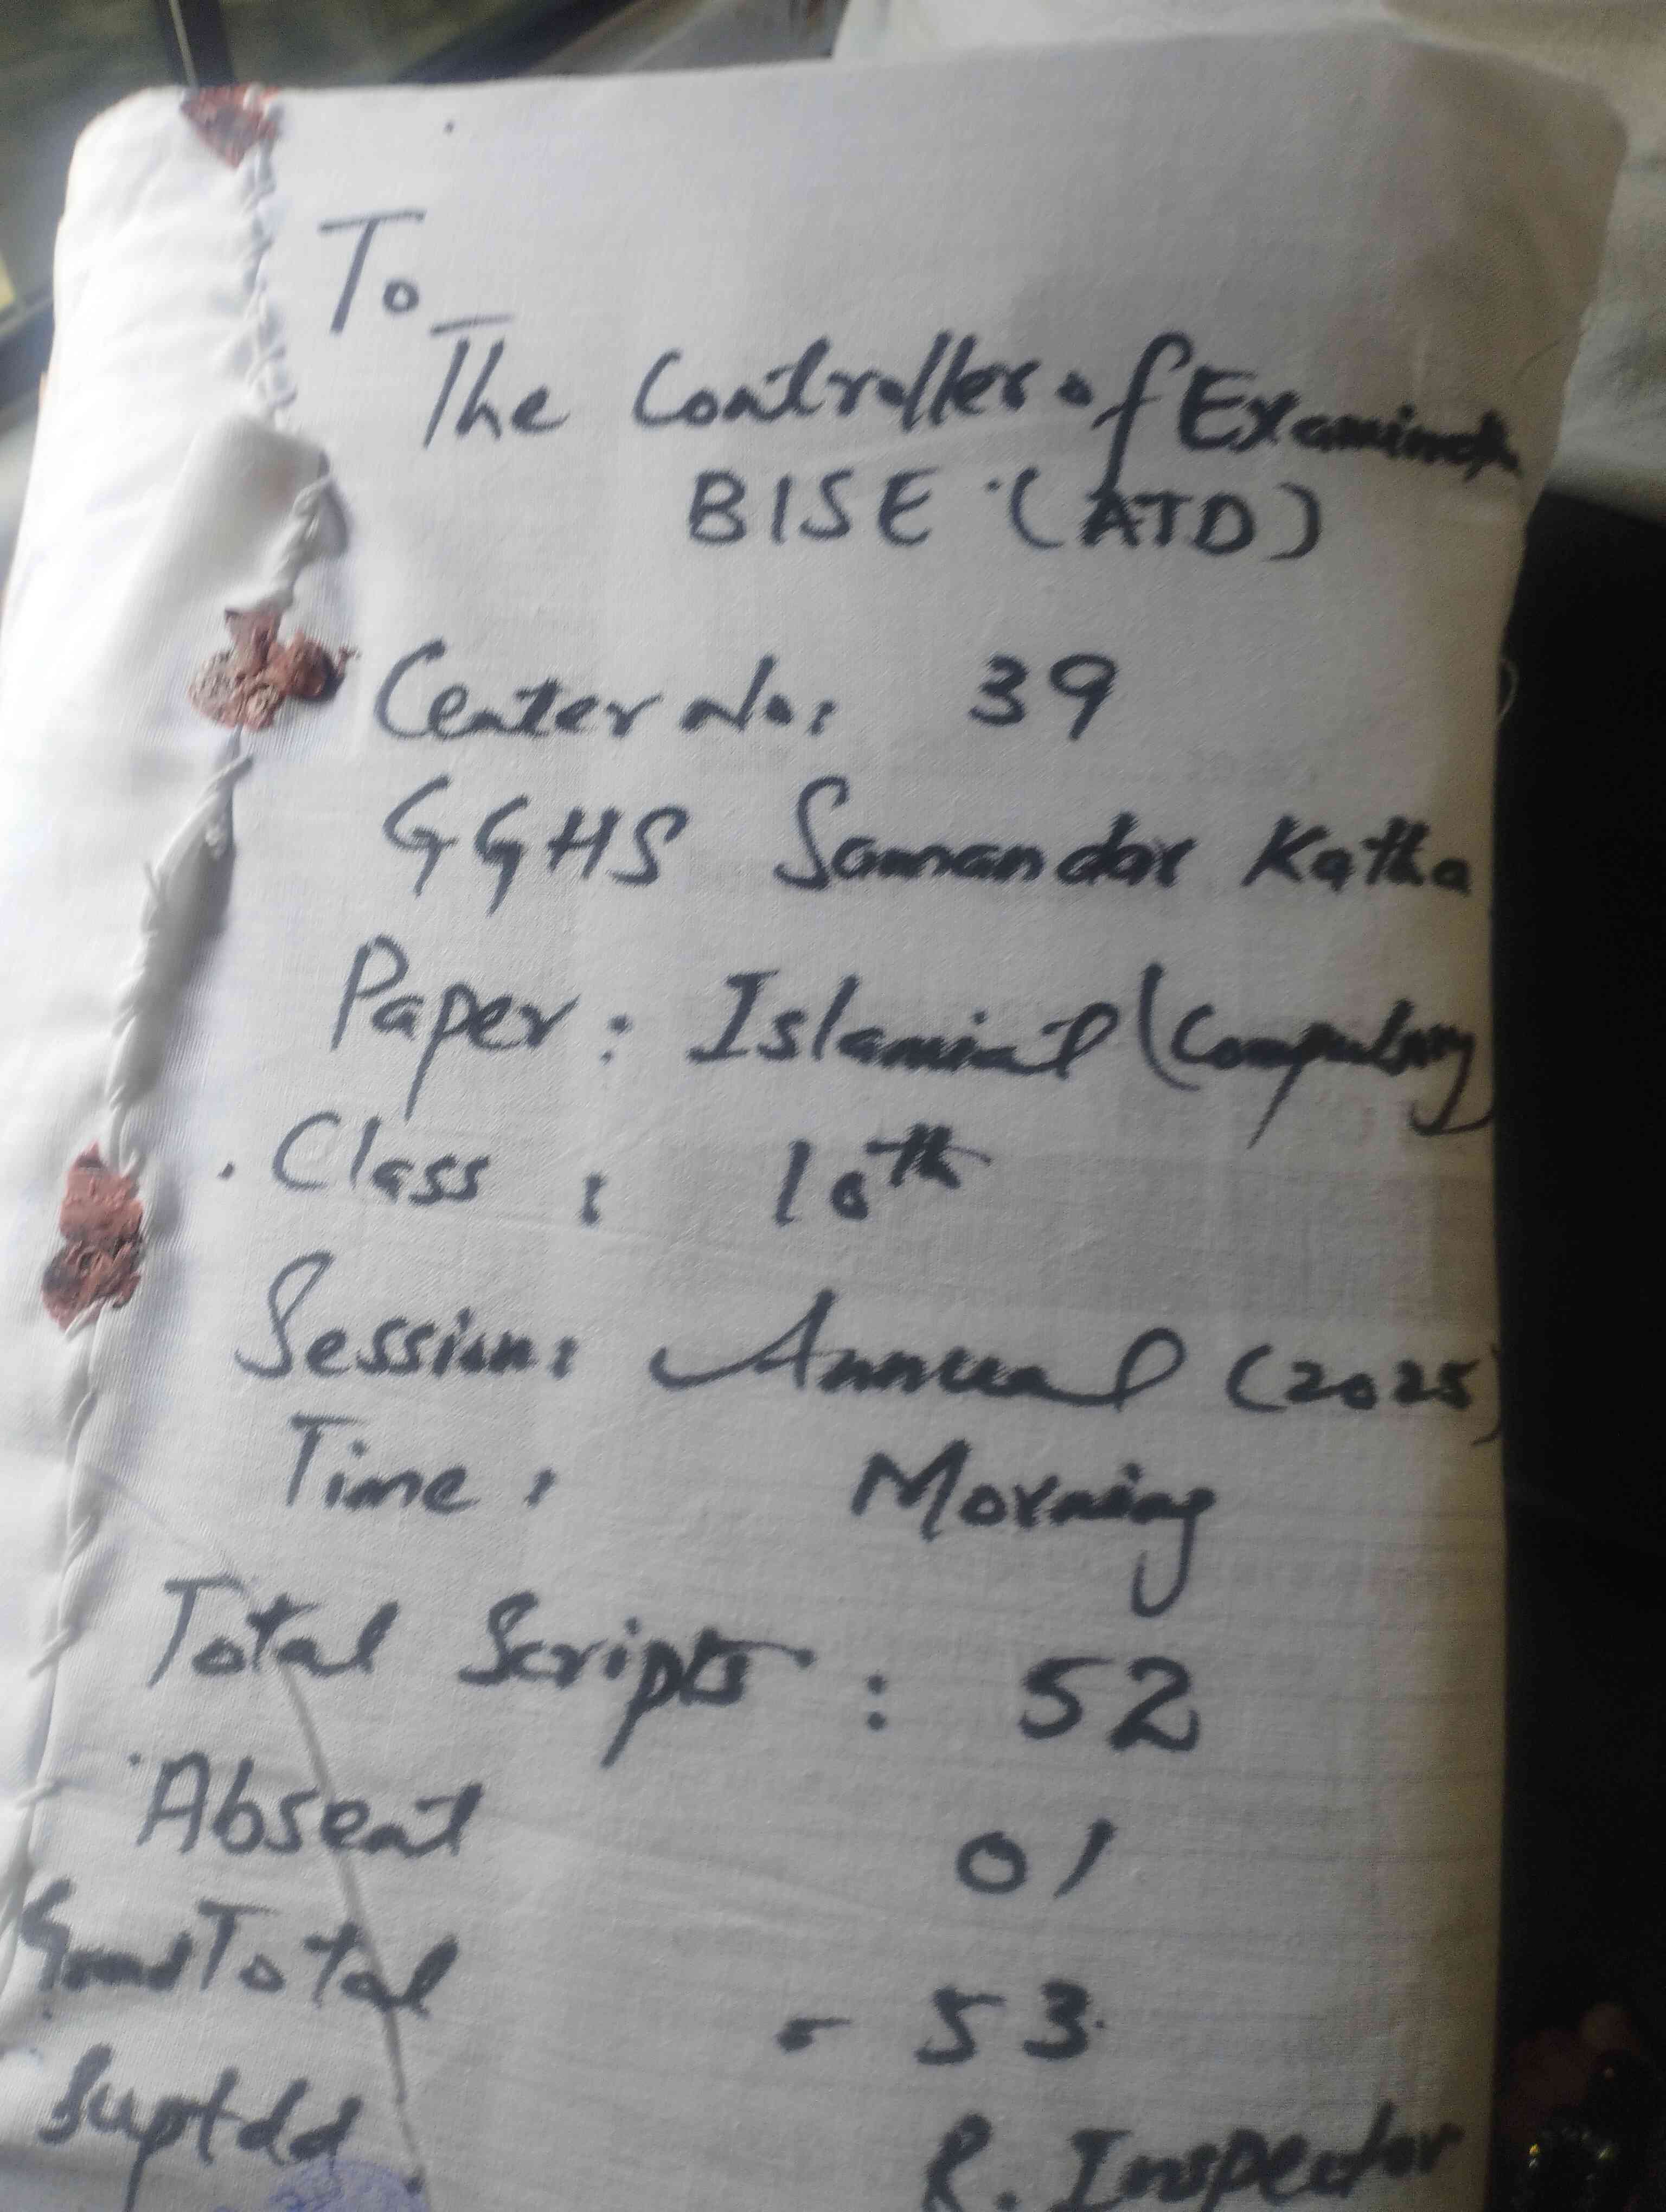 To
The Controller of Examinat
BISE (ATD)
Center No: 39
GGHS Samandar Katha
Paper: Islamiat (Compulsory
Class : 10th
Session: Annual (2025)
Time: Morning
Total Scripts : 52
Absent 01
Grand Total - 53
Suptdd R. Inspector